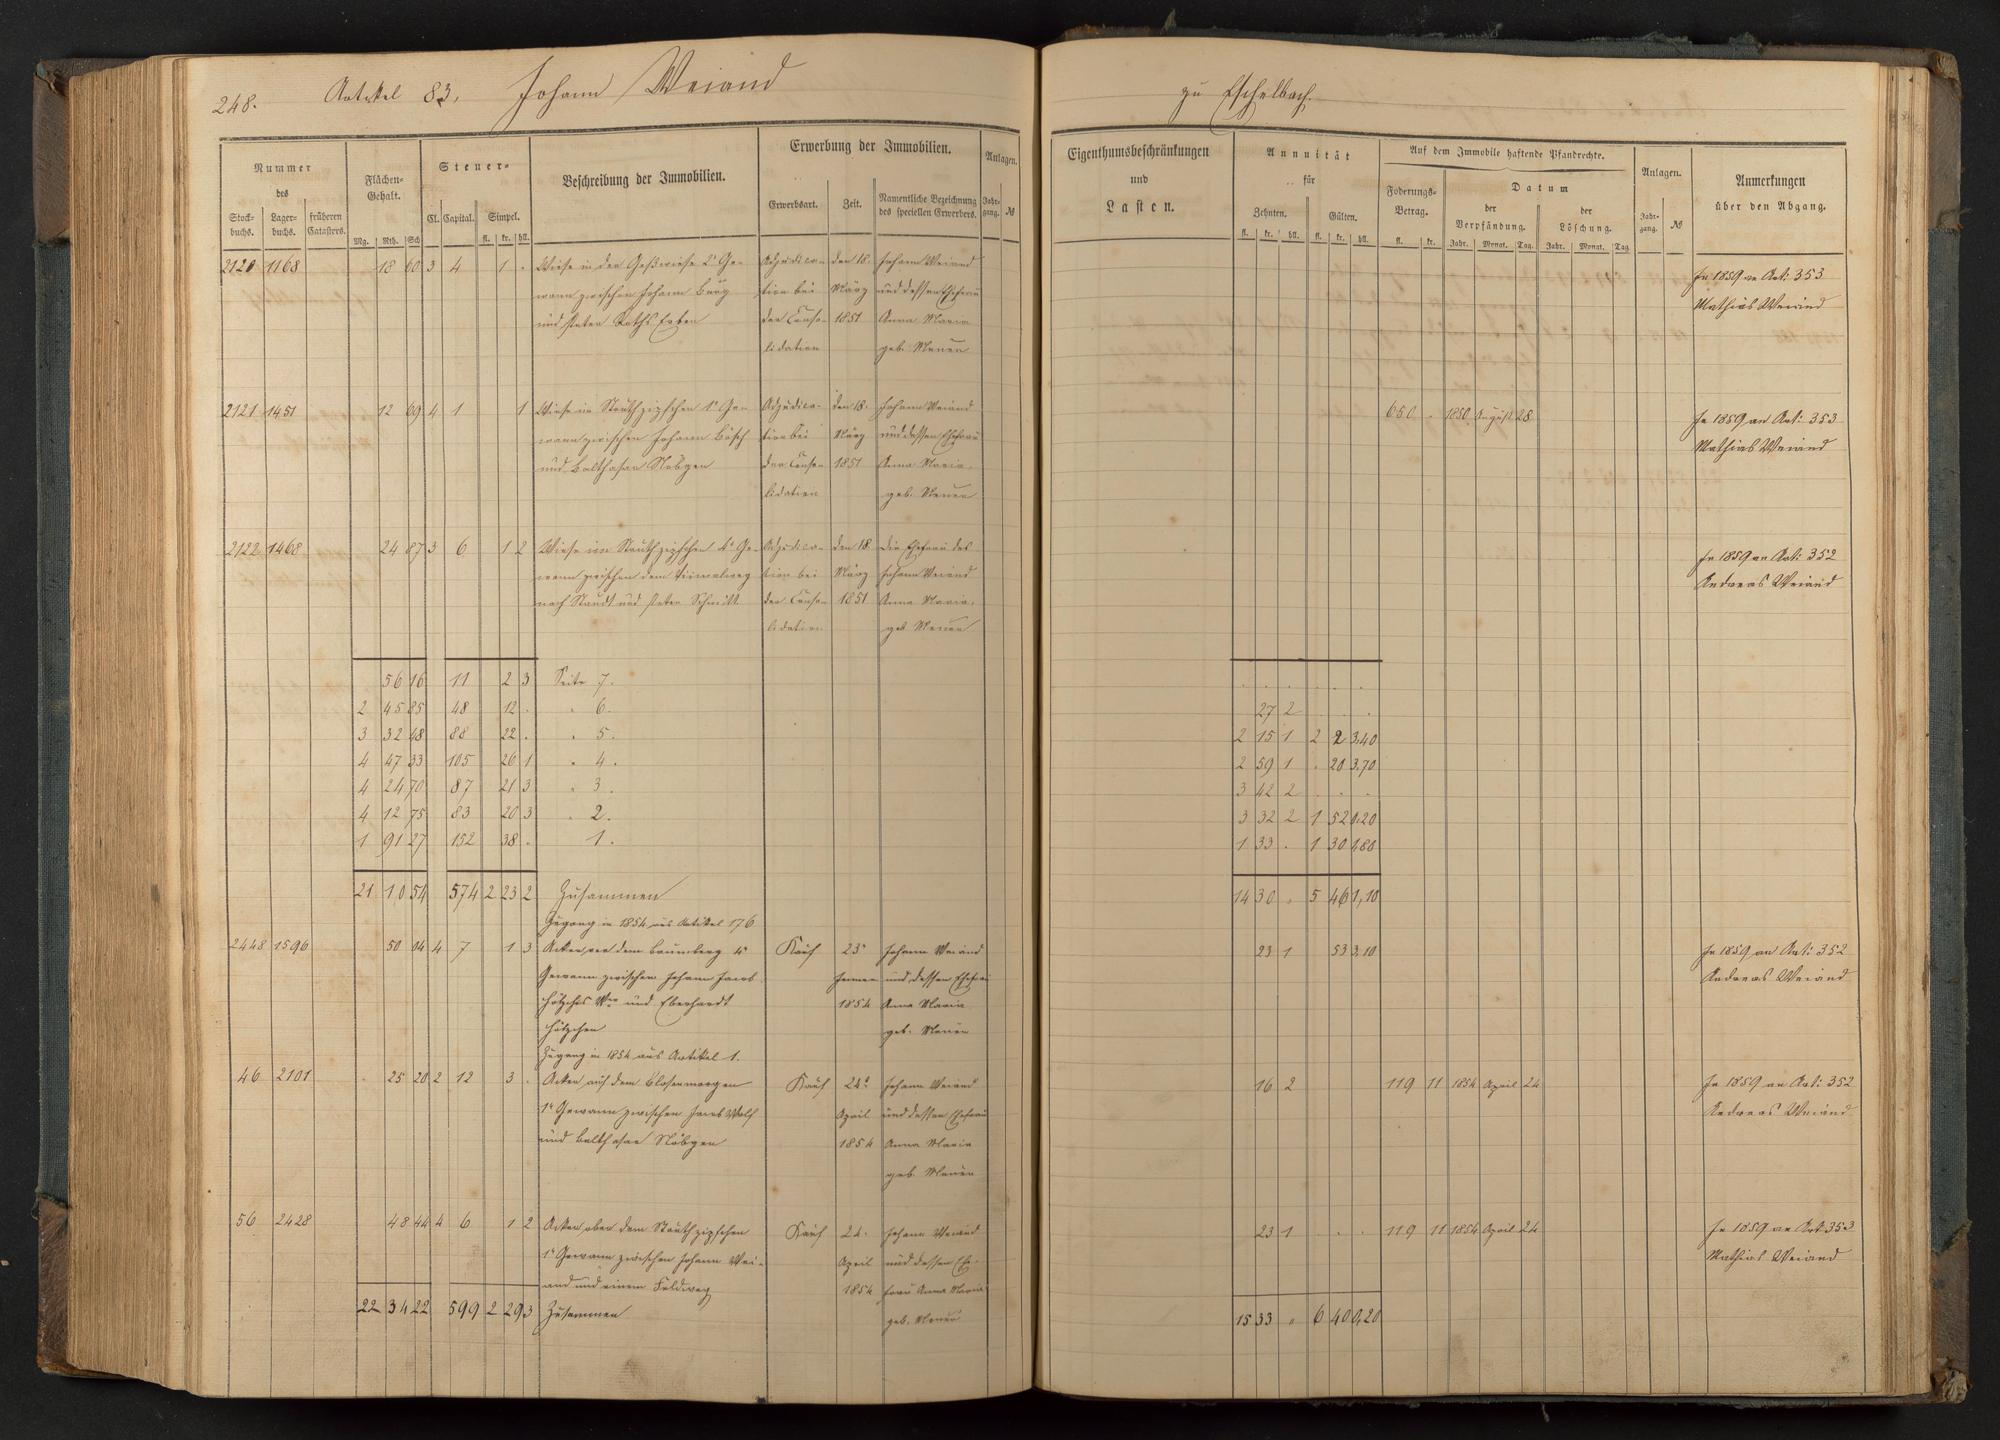 248. Artikel 83, Johann Weiand zu Eschelbach.
Nummer des
Stock-buchs. Lager-buchs. früheren Catasters.
Flächen-Gehalt.
Mg. Rth. Sch
Steuer-
Cl. Capital. Simpel.
fl. kr. hll.
Beschreibung der Immobilien.
Erwerbung der Immobilien.
Erwerbsart. Zeit. Namentliche Bezeichnung des speciellen Erwerbers.
Anlagen.
Jahr-gang. №
Eigenthumsbeschränkungen
und
Lasten.
Annuität
für
Zehnten. Gülten.
fl. kr. hll. fl. kr. hll.
Auf dem Immobile haftende Pfandrechte.
Foderungs-Betrag.
fl. kr.
Datum
der Verpfändung. der Löschung.
Jahr. Monat. Tag Jahr. Monat. Tag
Anlagen.
Jahr-gang. №
Anmerkungen
über den Abgang.
2120 1168 18 60 3 4 1 . Wiese in der 2r Ge- Adjudica- den 18. Johann Weiand In 1859 an Art: 353
wann zwischen Johann Burg tion bei März und dessen Ehefrau Mathias Weiand
und Peter Raths Erben der Conso- 1851 Anna Maria
lidation geb. Meuer
2121 1451 12 69 4 1 1 Wiese im Stauthzipfchen 1r Ge- Adjudica- den 18. Johann Weiand 650 - 1850 August 28 In 1859 an Art: 353
wann zwischen Johann Bösch tion bei März und dessen Ehefrau Mathias Weiand
und Balthasar Nöbgen der Conso- 1851 Anna Maria,
lidation geb. Meuer
2122 1468 24 87 3 6 1 2 Wiese im Stauthzipfchen 4r Ge- Adjudica- den 18. die Ehefrau des In 1859 an Art: 352
wann zwischen dem Viimalweg tion bei März Johann Weiand Andreas Weiand
nach Staudt und Peter Schmitt der Conso- 1851 Anna Maria,
lidation geb. Meuer
56 16 11 2 3 Seite 7. . . . . . .
2 45 85 48 12 . " 6. 27 2 . . .
3 32 48 88 22 . " 5. 2 15 1 2 2 3,40
4 47 33 105 26 1 " 4. 2 59 1 . 20 3,70
4 24 70 87 21 3 " 3. 3 42 2 . . .
4 12 75 83 20 3 " 2. 3 32 2 1 52 1,20
1 91 27 152 38 . 1. 1 33 . 1 30 1,80
21 10 54 574 2 23 2 Zusammen 14 30 " 5 46 1,10
Zugang in 1854 aus Artikel 176
2448 1596 50 14 4 7 1 3 Acker vor dem Baumberg 4r Kauf 23n Johann Weiand 23 1 53 3,10 In 1859 an Art: 352
Gewann zwischen Johann Jacob Jenner und dessen Ehefrau Andreas Weiand
Hötzches Wwe und Eberhardt 1854 Anna Maria
Hötzchen geb. Meuer
Zugang in 1854 aus Artikel 1.
46 2101 . 25 20 2 12 3 . Acker auf dem Blosenmorgen Kauf 24n Johann Weiand 16 2 119 11 1854 April 24 In 1859 an Art: 352
1r Gewann zwischen Jacob Wolf April und dessen Ehefrau Andreas Weiand
und Balthasar Nöbgen 1854 Anna Maria
geb. Meuer
56 2428 48 44 4 6 1 2 Acker ober dem Stauthzipfchen Kauf 24. Johann Weiand 23 1 . . 119 11 1854 April 24 In 1859 an Art: 353
1r Gewann zwischen Johann Wei- April und dessen Ehe- Mathias Weiand
and und einem Feldweg 1854 frau Anna Maria
22 34 22 599 2 29 3 Zusammen geb. Meuer 15 33 " 6 40 0,20